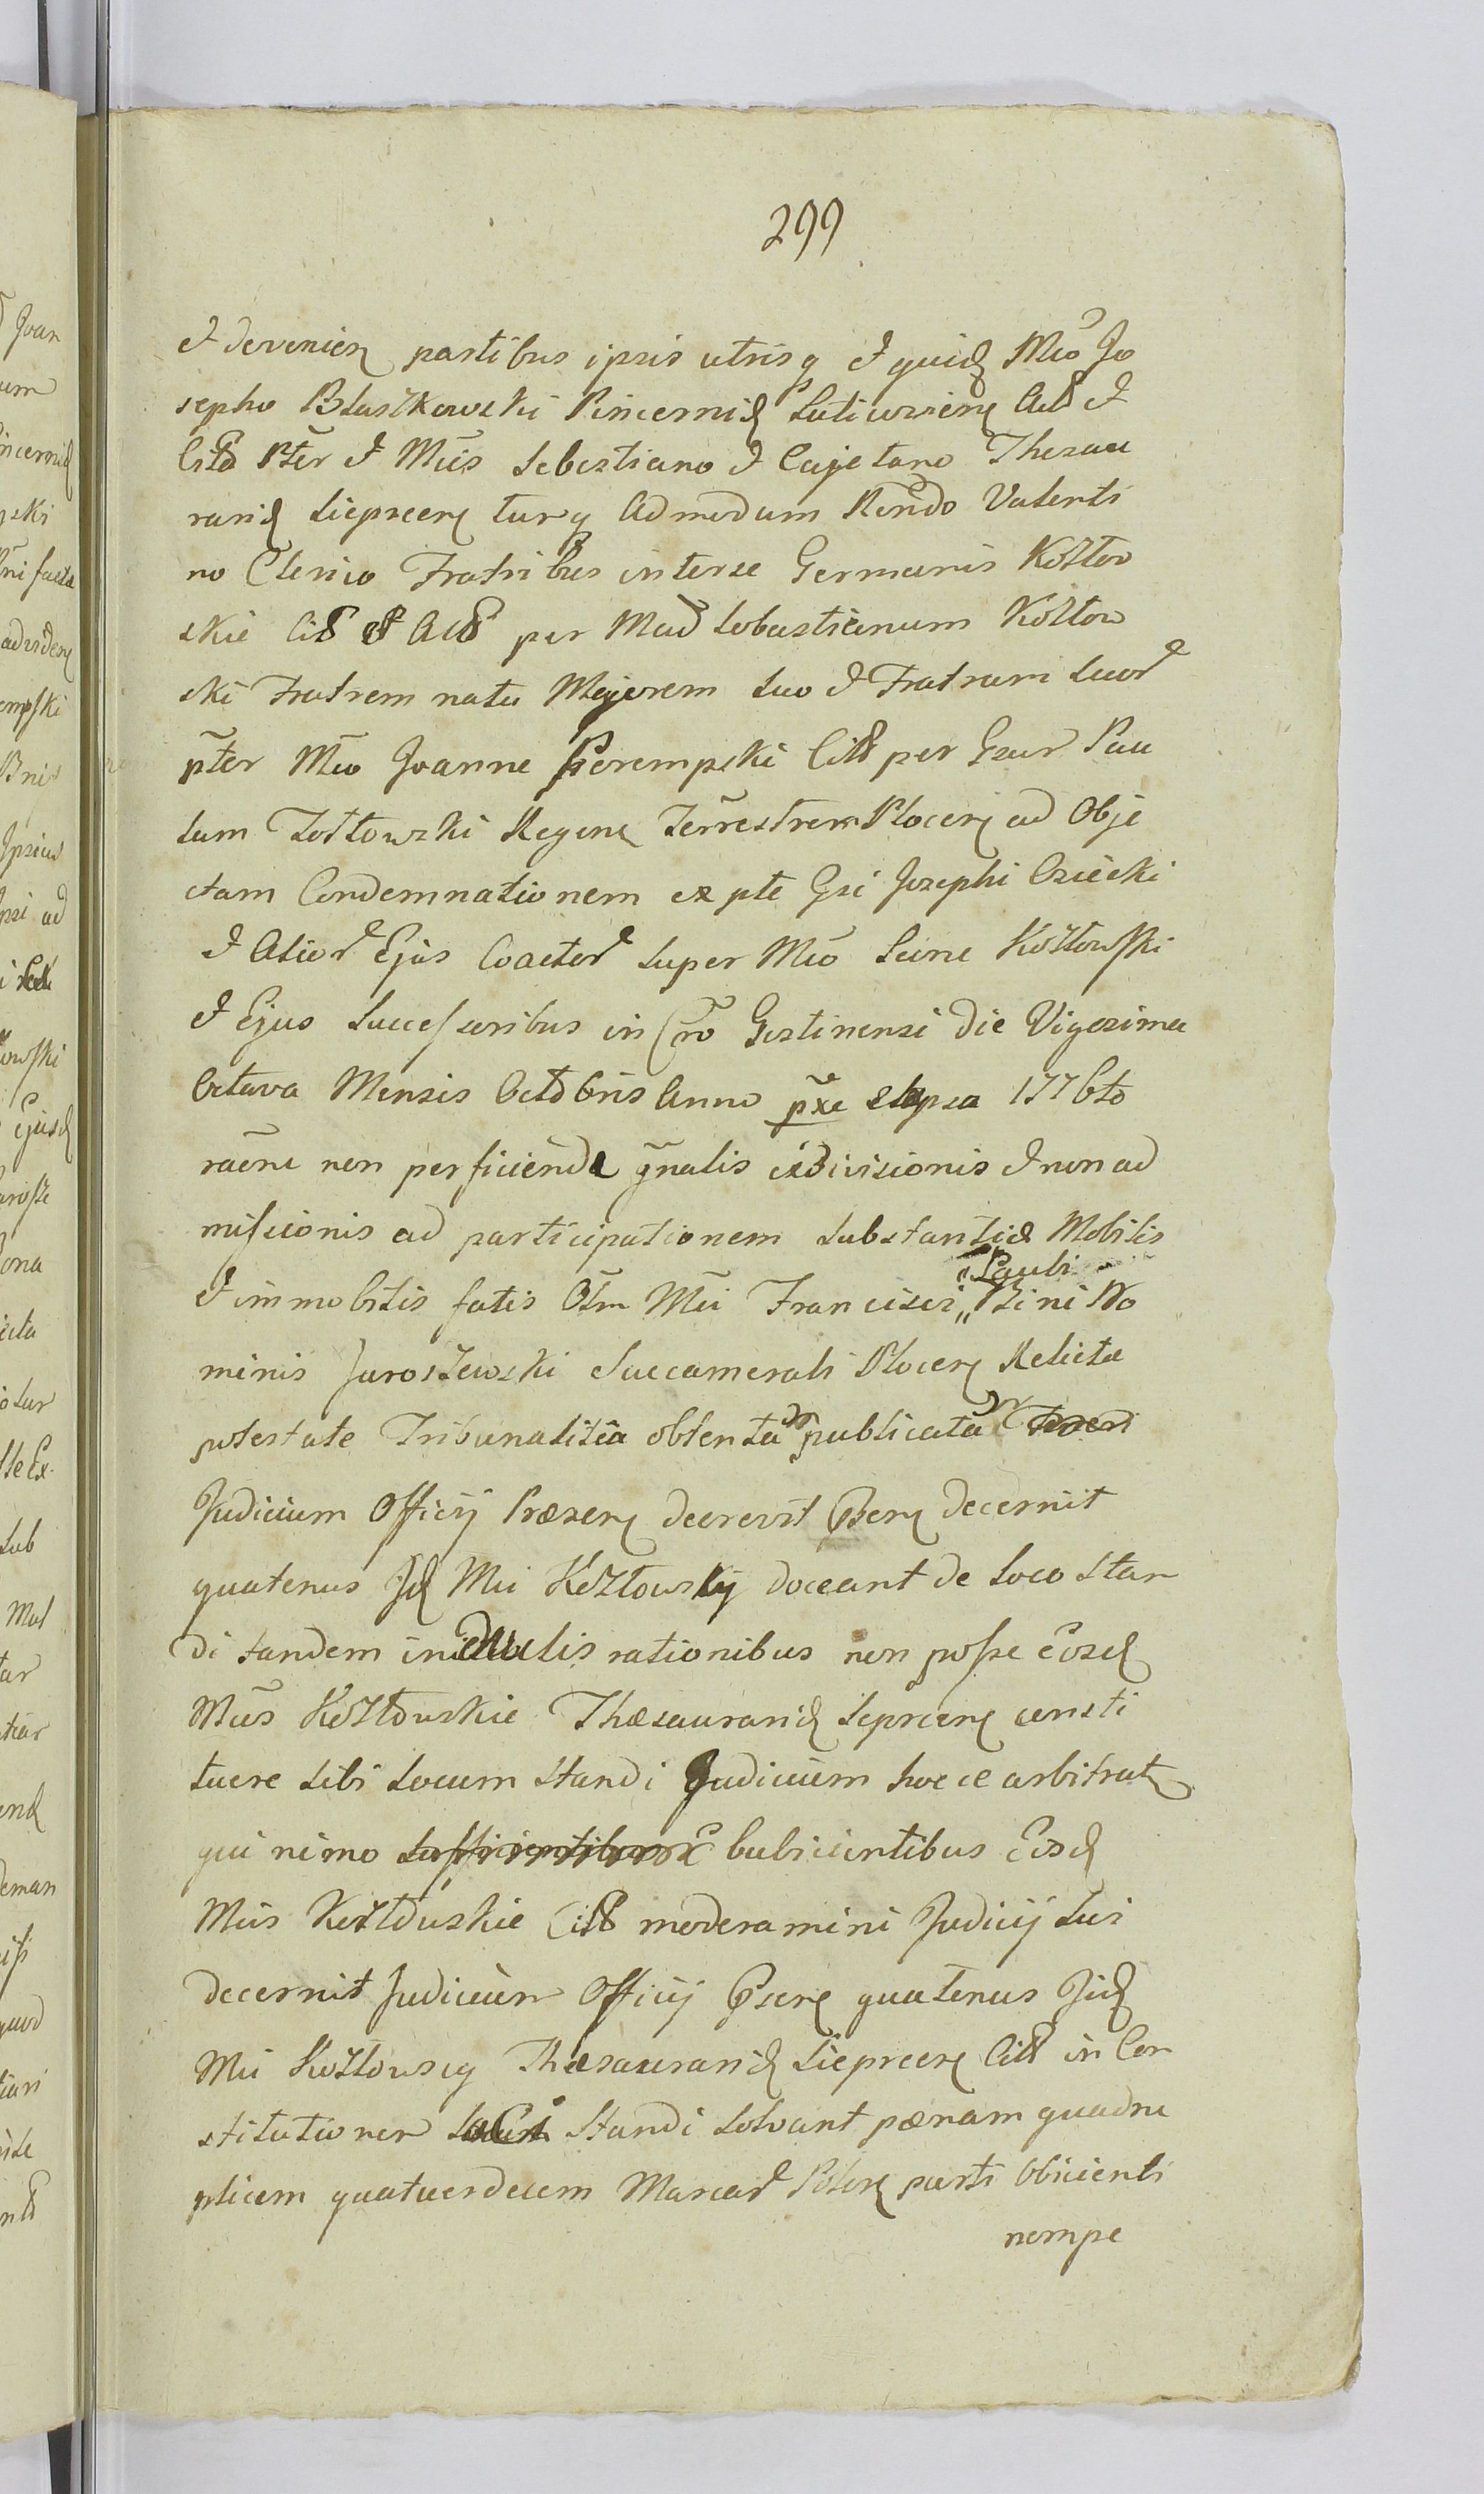 299
et devenien partibus ipsis utrisq et quid Mco Jo
sepho Błaszkowski Pincernid Luticzoviens Act et
Citd Pter et Mcis Sebestiano et Cajetano Thesau
ranid Siepscens turq Admodum Rendo Valenti
no Clerico Fratribus inter se Germanis Kozłow
skie Cit et Act per Mcud Sebastianum Kozłow
ski Fratrem natu Majorem suo et Fratrum suor
pter Mco Joanne Perempski Citt per Gsum Pau
lum Zołtowski Regene Terrestrem Plocens ad Obje
ctam Condemnationem ex pte Gsi Josephi Osiecki
et Alior Ejus Coactor super Mco Kozłowski
et Ejus Successoribus in Cro Gostinensi die Vigesima
Octava Mensis Octobris Anno pxe elapso 1776to
raone non perficiende gnalis exdivisionis et non ad
missionis ad participationem substantiæ Mobilis
Pauli
et immobilis fatis Olim Mci Francisci " Bini No
minis Jaroszewski Succamerali Plocens Relicta
potestate Tribunalitia obtenta publicata
Judicium Officij Præsens decrevit Psens decernit
quatenus Jd Mci Kozłowscy doceant de Loco stan
di tandem in rationibus non posse Eosd
Mcos Kozłowskie Thæsauranid Sepscens consti
tuere sibi Locum standi Judicium hocce arbitratr
qui nimo subicientibus Eosd
Mcis Kozłowskie Citt moderamini Judicij sui
decernit Judicium Officij Psens quatenus Jid
Mci Kozłowscy Thæsauranid Siepscens Citt in Con
stitutionem Loci standi solvant pœnam quadru
plicem quatuordecim Marcar Polon parti Obicienti
nempe